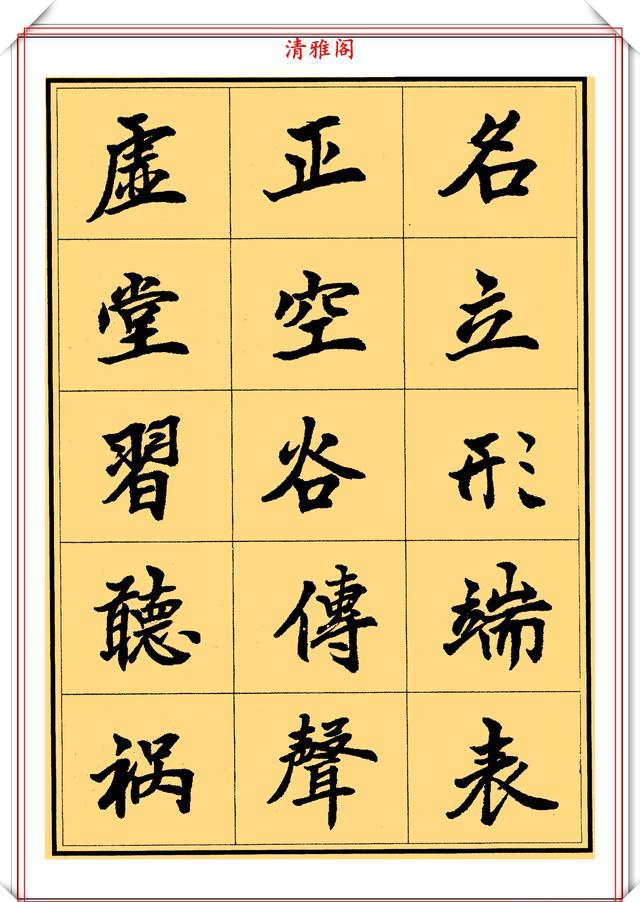 清雅阁
名立形端表
正空谷傳聲
虛堂習聽祸